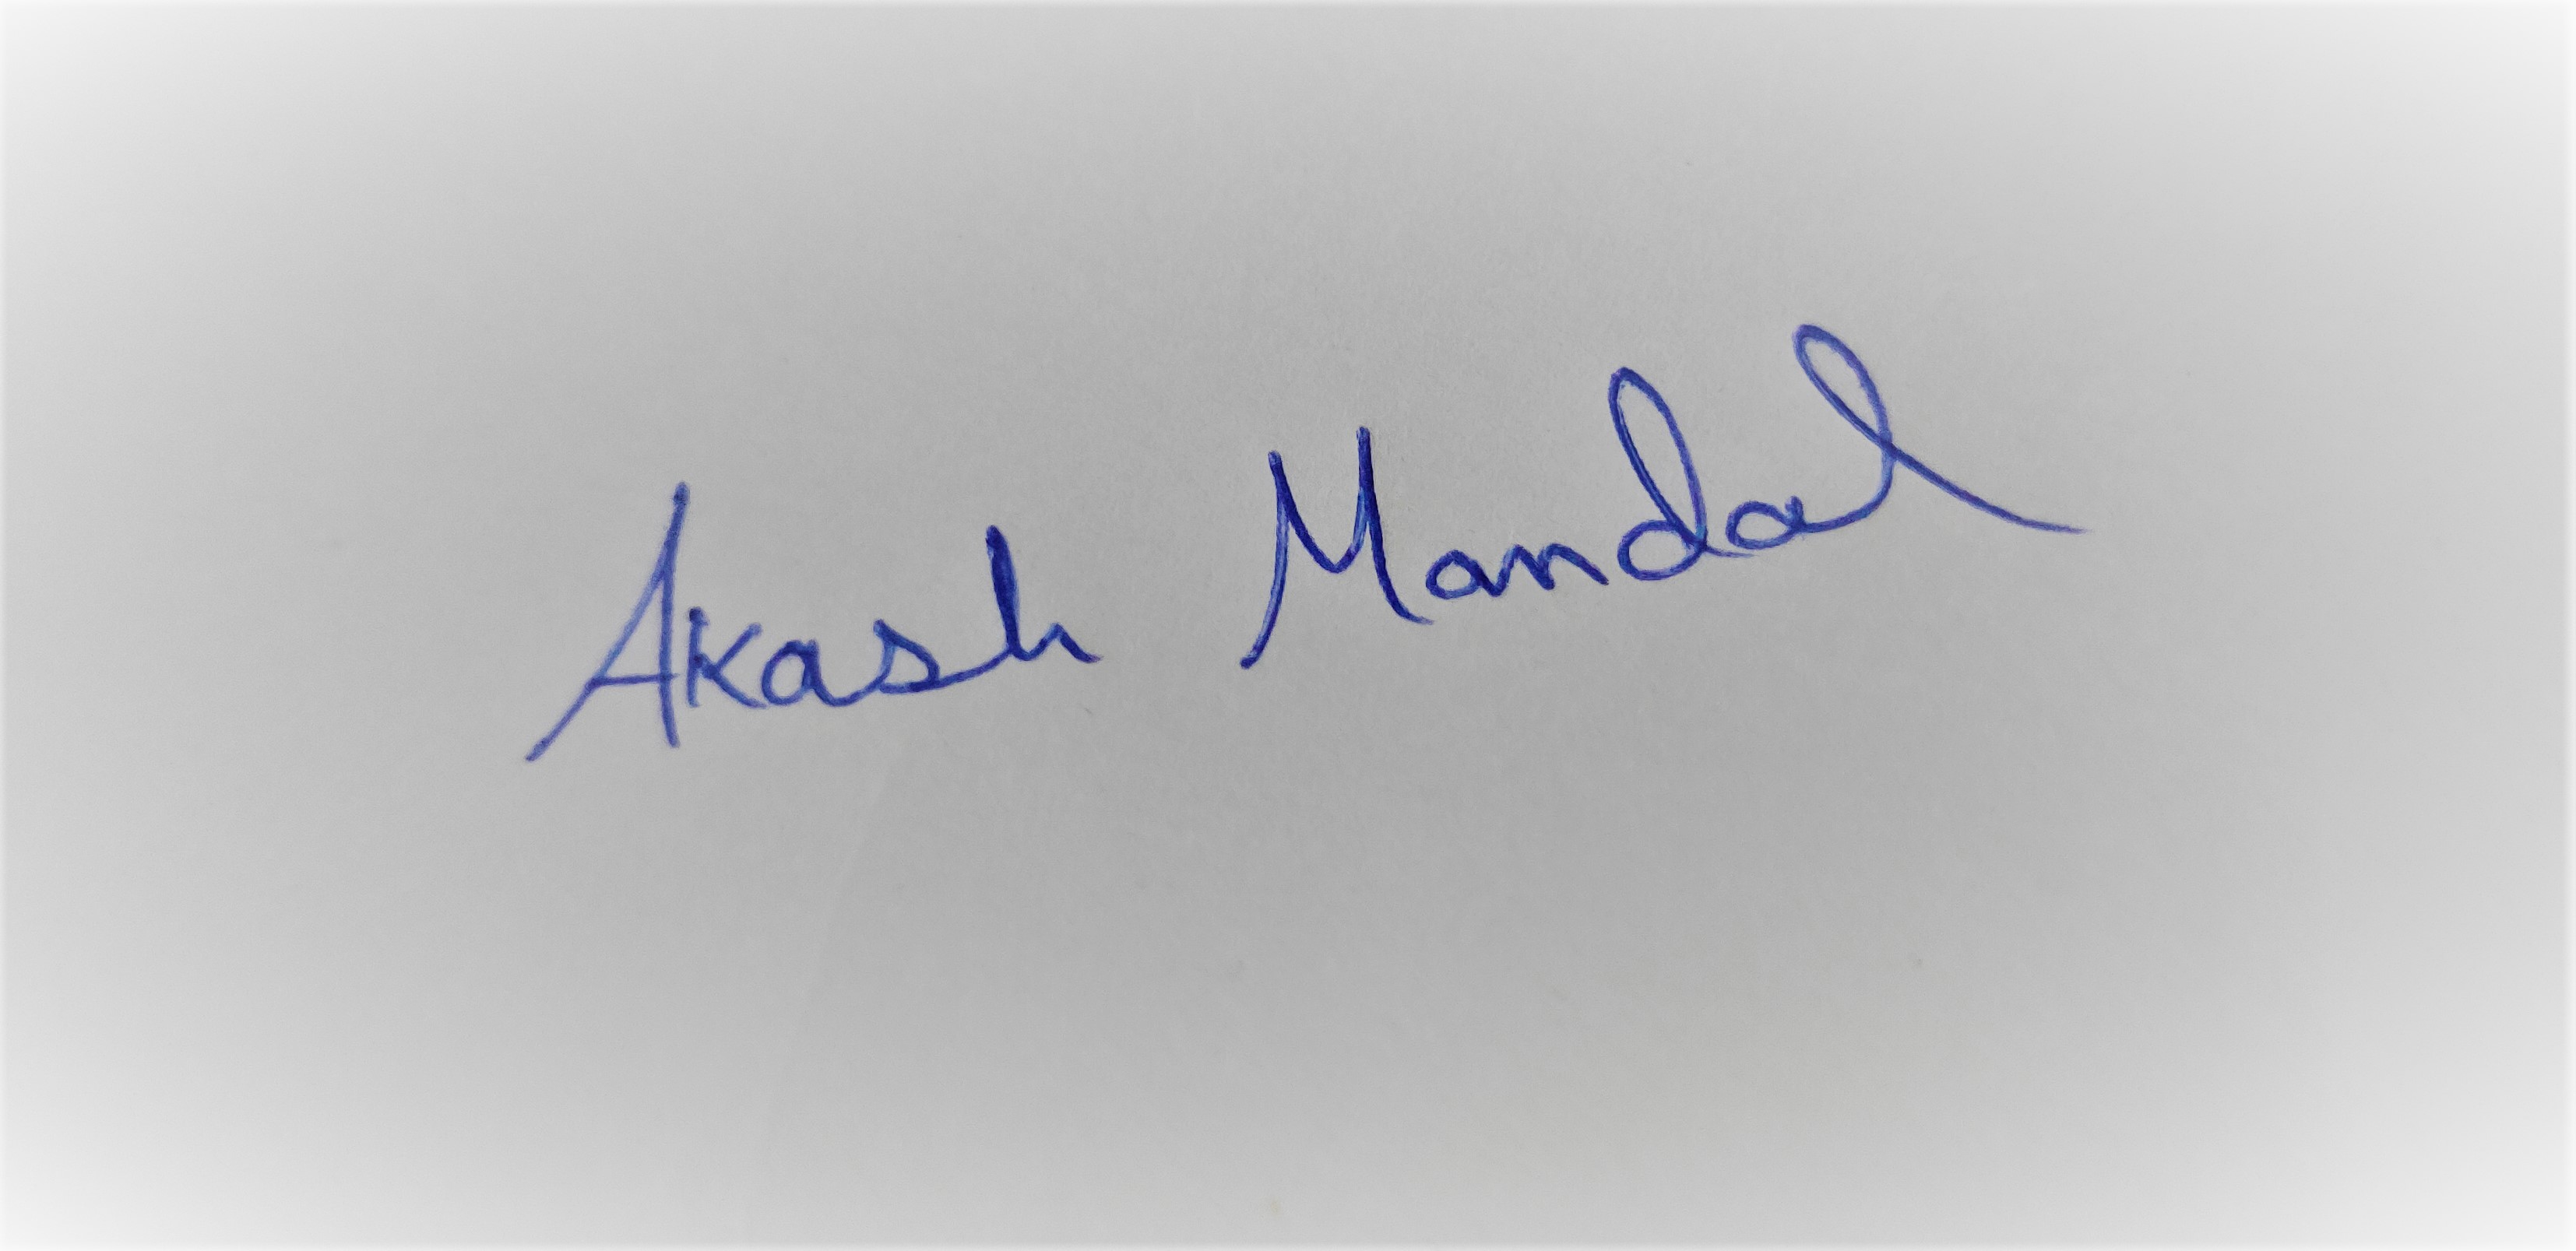 Akash Mandal